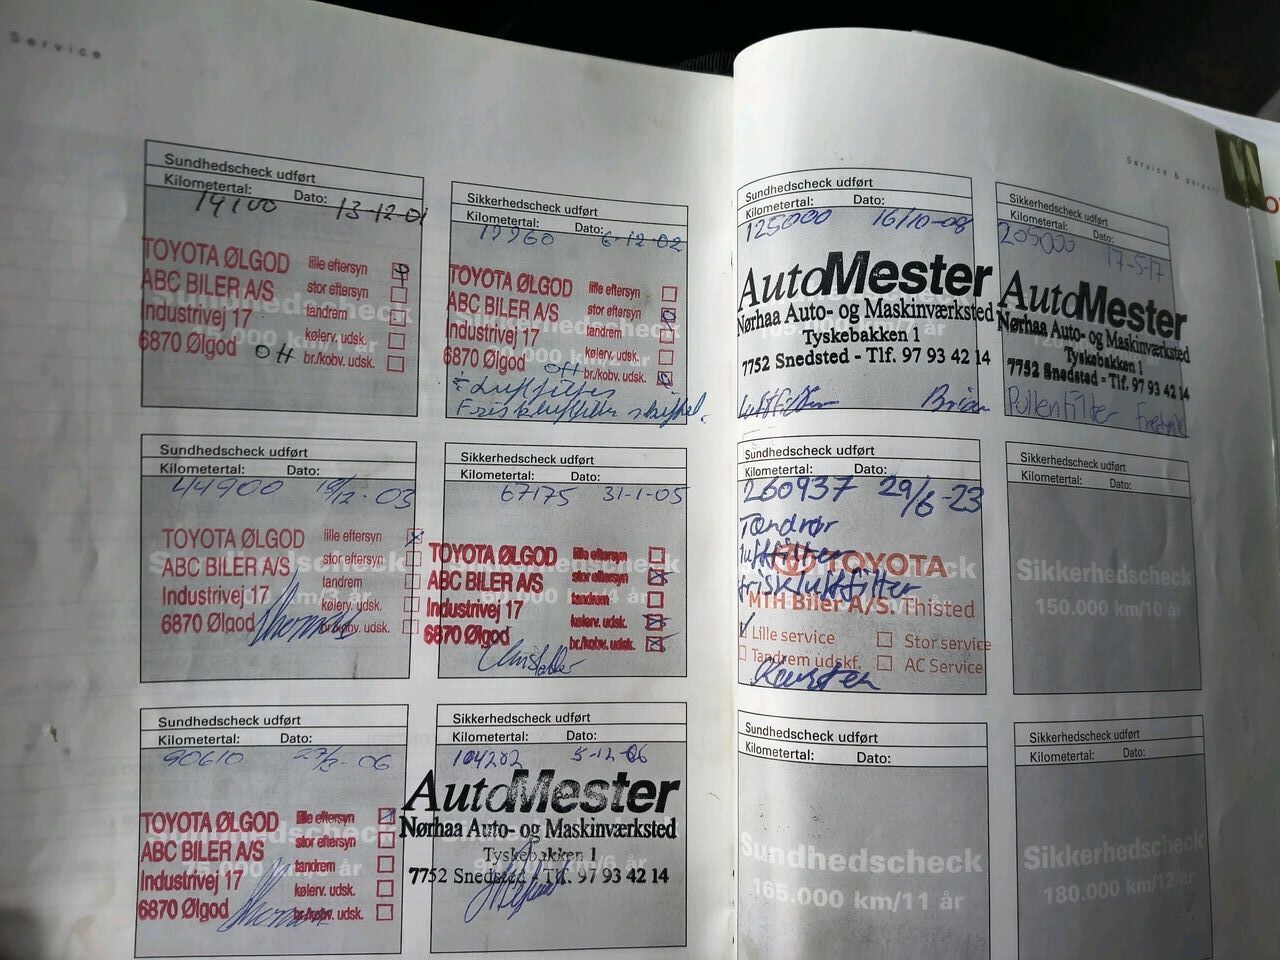 Service
Sundhedscheck udført
Kilometertal: Dato:
14100 13-12-01
TOYOTA ØLGOD
ABC BILER A/S
Industrivej 17
6870 Ølgod
OH
lille eftersyn
stor eftersyn
tandrem
kølerv. udsk.
br./kobv. udsk.
Sikkerhedscheck udført
Kilometertal: Dato:
6-12-02
TOYOTA ØLGOD
ABC BILER A/S
Industrivej 17
6870 Ølgod
OH
lille eftersyn
stor eftersyn
tandrem
kølerv. udsk.
br./kobv. udsk.
Luftfilter
Friskluftfilter
Sundhedscheck udført
Kilometertal: Dato:
44900 19/12-03
TOYOTA ØLGOD
ABC BILER A/S
Industrivej 17
6870 Ølgod
lille eftersyn
stor eftersyn
tandrem
kølerv. udsk.
br./kobv. udsk.
Sikkerhedscheck udført
Kilometertal: Dato:
67175 31-1-05
TOYOTA ØLGOD
ABC BILER A/S
Industrivej 17
6870 Ølgod
lille eftersyn
stor eftersyn
tandrem
kølerv. udsk.
br./kobv. udsk.
Sundhedscheck udført
Kilometertal: Dato:
90610
TOYOTA ØLGOD
ABC BILER A/S
Industrivej 17
6870 Ølgod
lille eftersyn
stor eftersyn
tandrem
kølerv. udsk.
br./kobv. udsk.
Sikkerhedscheck udført
Kilometertal: Dato:
104202 5-12-06
AutoMester
Nørhaa Auto- og Maskinværksted
Tyskebakken 1
7752 Snedsted - Tlf. 97 93 42 14
Service & garanti
Sundhedscheck udført
Kilometertal: Dato:
125000 16/10-08
AutoMester
Nørhaa Auto- og Maskinværksted
Tyskebakken 1
7752 Snedsted - Tlf. 97 93 42 14
Luftfilter Brian
Sikkerhedscheck udført
Kilometertal: Dato:
205000 17-5-17
AutoMester
Nørhaa Auto- og Maskinværksted
Tyskebakken 1
7752 Snedsted - Tlf. 97 93 42 14
Pollenfilter
Sundhedscheck udført
Kilometertal: Dato:
260937 29/6-23
Tændrør
luftfilter
friskluftfilter
TOYOTA
MTH Biler A/S. Thisted
Lille service
Stor service
Tandrem udskf.
AC Service
Karsten
Sikkerhedscheck udført
Kilometertal: Dato:
Sikkerhedscheck
150.000 km/10 år
Sundhedscheck udført
Kilometertal: Dato:
Sundhedscheck
165.000 km/11 år
Sikkerhedscheck udført
Kilometertal: Dato:
Sikkerhedscheck
180.000 km/12 år